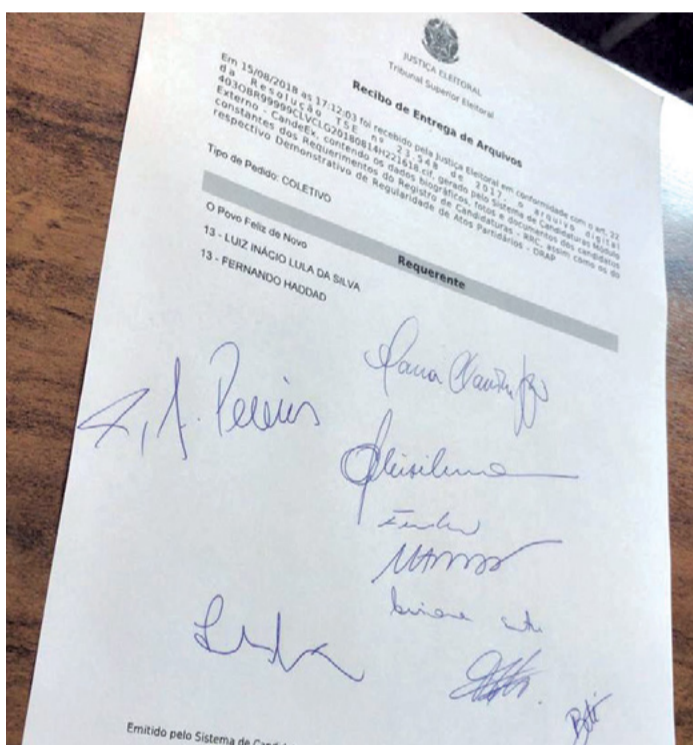 JUSTIÇA ELEITORAL
Tribunal Superior Eleitoral
Recibo de Entrega de Arquivos
Em 15/08/2018 as 17:12:03 foi recebido pela Justiça Eleitoral em conformidade com o art. 22
da Resolução TSE nº 23.548 de 2017, o arquivo digital
403OBR99999CLVCLG20180814H221618.cif, gerado pelo Sistema de Candidaturas Módulo
Externo - CandeEx, contendo os dados biográficos, fotos e documentos dos candidatos
constantes dos Requerimentos do Registro de Candidaturas - RRC, assim como os do
respectivo Demonstrativo de Regularidade de Atos Partidários - DRAP
Tipo de Pedido: COLETIVO
Requerente
O Povo Feliz de Novo
13 - LUIZ INÁCIO LULA DA SILVA
13 - FERNANDO HADDAD
Pereira
Emitido pelo Sistema de